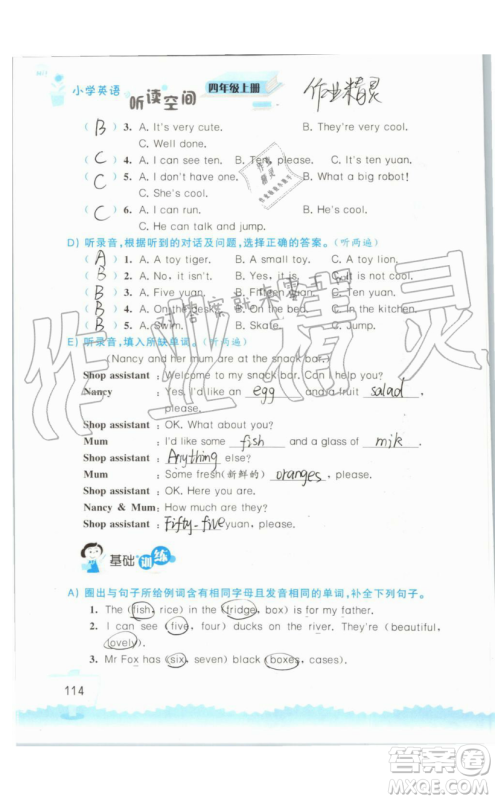 小学英语
听读空间
四年级上册
作业精灵
( B ) 3. A. It's very cute. B. They're very cool.
C. Well done.
( C ) 4. A. I can see ten. B. Ten, please. C. It's ten yuan.
( C ) 5. A. I don't have one. B. What a big robot!
C. She's cool.
( C ) 6. A. I can run. B. He's cool.
C. He can talk and jump.
D) 听录音,根据听到的对话及问题,选择正确的答案。(听两遍)
( A ) 1. A. A toy tiger. B. A small tiger. C. A toy lion.
( B ) 2. A. No, it isn't. B. It's cool. C. It is not cool.
( B ) 3. A. Five yuan. B. Fifteen yuan. C. Ten yuan.
( B ) 4. A. On the desk. B. On the bed. C. In the kitchen.
( A ) 5. A. Swim. B. Skate. C. Jump.
E) 听录音,填入所缺单词。(听两遍)
(Nancy and her mum are at the snack bar.)
Shop assistant : Welcome to my snack bar. Can I help you?
Nancy : Yes, I'd like an egg and a fruit salad,
please.
Shop assistant : OK. What about you?
Mum : I'd like some fish and a glass of milk.
Shop assistant : Anything else?
Mum : Some fresh(新鲜的) oranges, please.
Shop assistant : OK. Here you are.
Nancy & Mum : How much are they?
Shop assistant : Fifty-five yuan, please.
基础训练
A) 圈出与句子所给例词含有相同字母且发音相同的单词,补全下列句子。
1. The (fish, rice) in the (fridge, box) is for my father.
2. I can see (five, four) ducks on the river. They're (beautiful,
lovely).
3. Mr Fox has (six, seven) black (boxes, cases).
114
作业精灵
答案圈
MXQE.COM